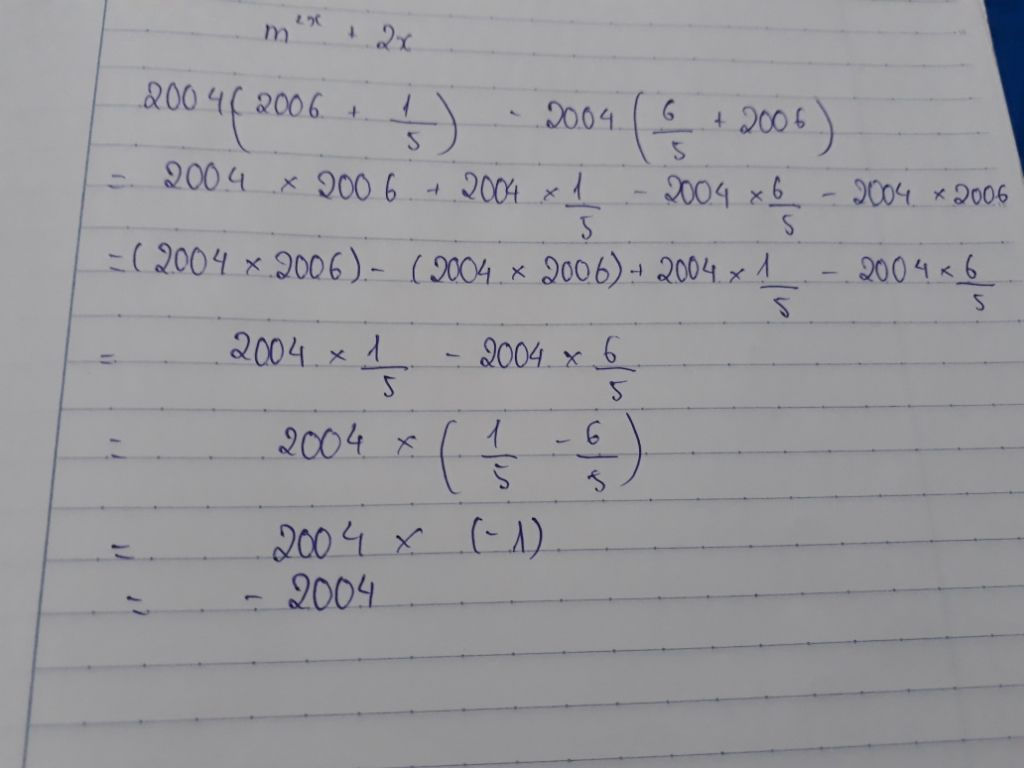 m^{2x} + 2x
2004(2006 + 1/5) - 2004(6/5 + 2006)
= 2004 × 2006 + 2004 × 1/5 - 2004 × 6/5 - 2004 × 2006
= (2004 × 2006) - (2004 × 2006) + 2004 × 1/5 - 2004 × 6/5
= 2004 × 1/5 - 2004 × 6/5
= 2004 × (1/5 - 6/5)
= 2004 × (-1)
= - 2004